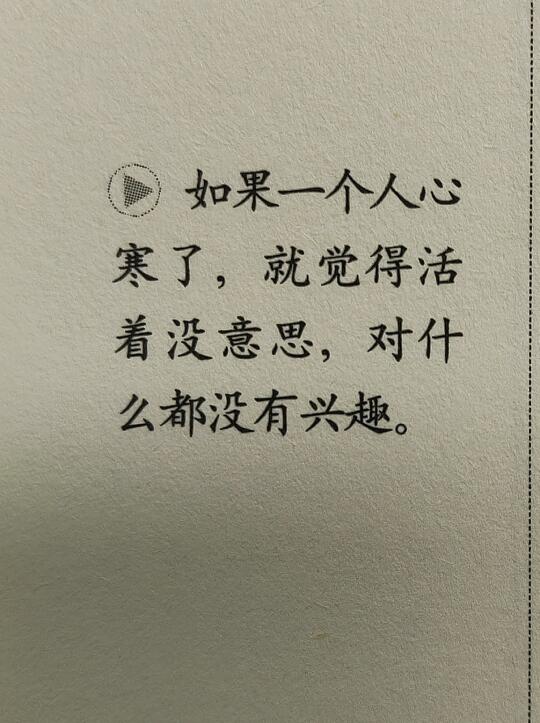 如果一个人心
寒了，就觉得活
着没意思，对什
么都没有兴趣。